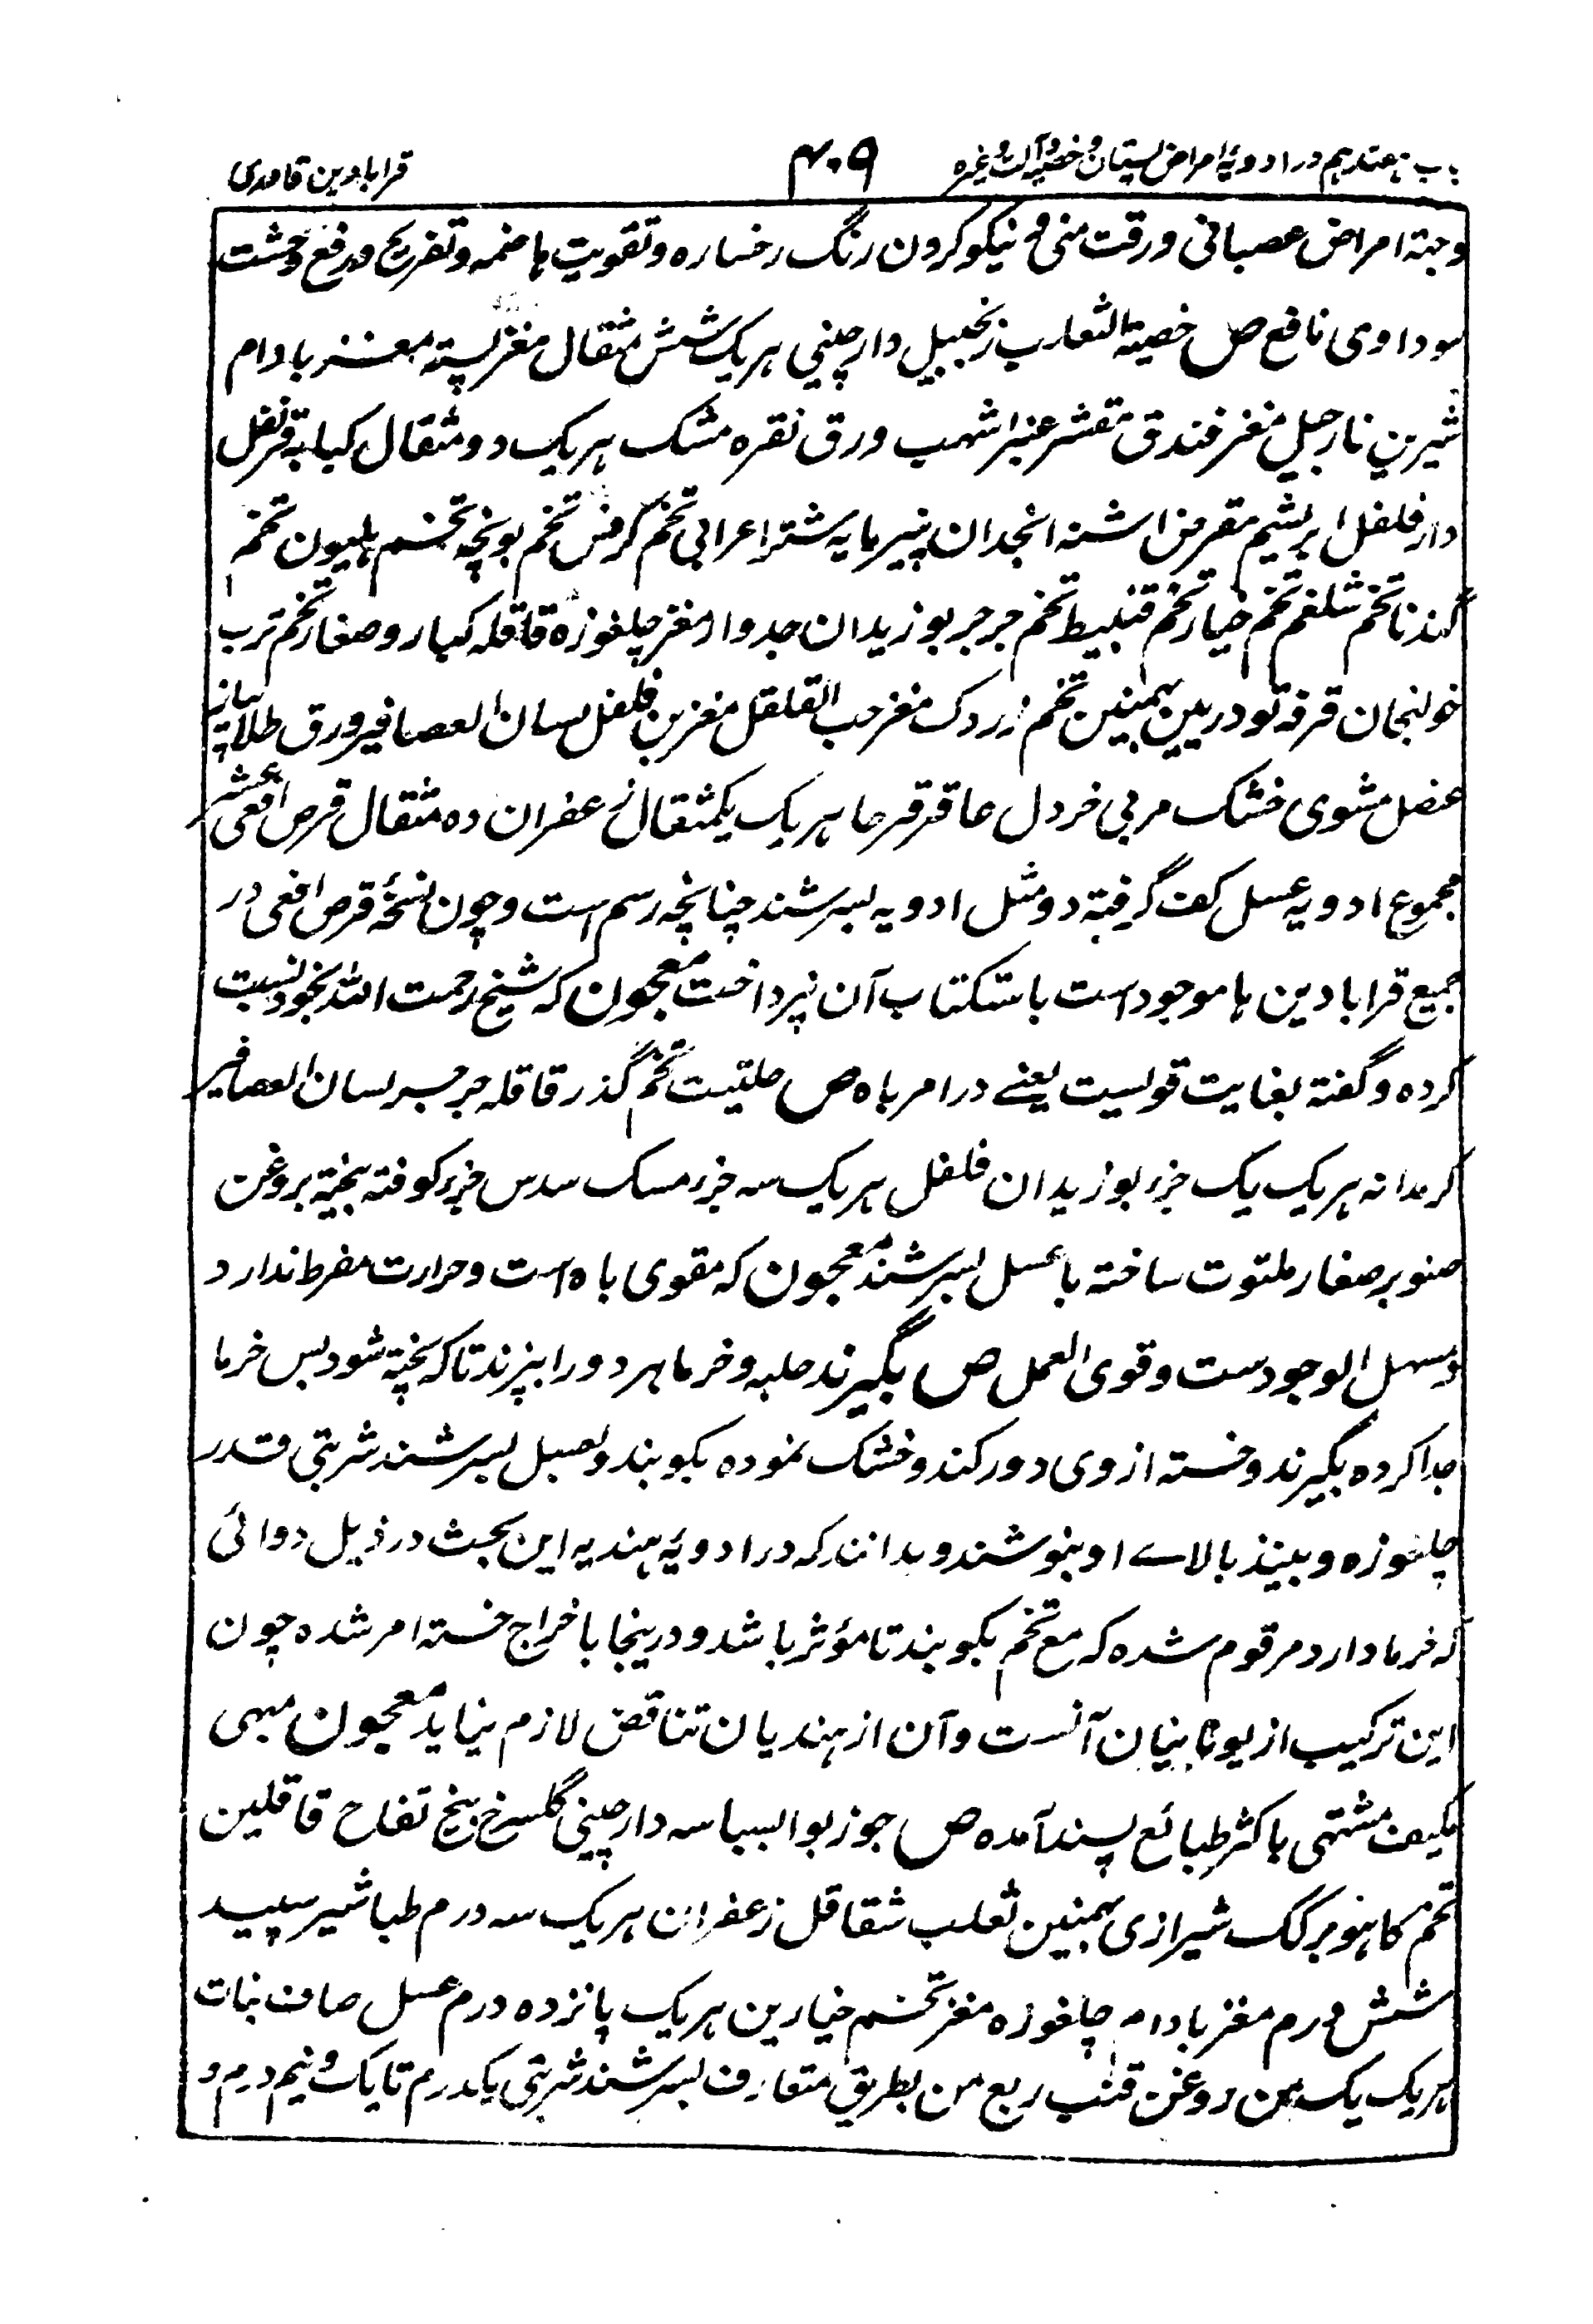 باب هفتدهم در ادویهٔ امراض پستان و خصیه و آلت و غیره ۴۰۹ قرابادین قادری
وجهة امراض عصبانی ورقت منی و نیکو کردن رنگ رخساره وتقویت هاضمه وتفریح ودفع وحشت
سوداوی نافع ص خصیة الثعلب زنجبیل دارچینی هریک شش مثقال مغز پسته مغز بادام
شیرین نارجیل مغز فندق مقشر عنبر اشهب ورق نقره مشک هریک دو مثقال کبابه قرنفل
دار فلفل ابریشم مقرض اشنه انجدان پنیرمایه شتر اعرابی تخم کرفس تخم یونجه تخم هلیون تخم
گندنا تخم شلغم تخم خیار تخم قنبیط تخم جرجر بوزیدان جدوار مغز چلغوزه قاقله کبار و صغار تخم ترب
خولنجان قرفه تودریین بهمنین تخم زردک مغز حب القلقل مغز بن فلفل لسان العصافیر ورق طلا پیاز
عنصل مشوی خشک مربی خردل عاقرقرحا هریک یکمثقال زعفران ده مثقال قرص افعی عشر
مجموع ادویه عسل کف گرفته دو مثل ادویه بسرشند چنانچه رسم است و چون نسخهٔ قرص افعی در
جمیع قرابادین ها موجود است باستکتاب آن نپرداخت معجون که شیخ رحمت الله بخود نسبت
کرده و گفته بغایت قویست یعنے در امر باه ص حلتیت تخم گذر قاقله جرجیر لسان العصافیر
کرمدانه هریک یک جزء بوزیدان فلفل هریک سه جزء مسک سدس جزء کوفته بیخته بروغن
صنوبر صغار ملتوت ساخته با عسل بسرشند معجون که مقوی باه است و حرارت مفرط ندارد
وسهل الوجود ست وقوی العمل ص بگیرند حلبه وخرما هر دو را بپزند تا که پخته شود پس خرما
جدا کرده بگیرند وخسته از وی دور کنند وخشک نموده بکوبند وبعسل بسرشند شربتی قدر
چلغوزه ونبیذ بالاے او بنوشند وبدانند که در ادویهٔ هندیه این بحث در ذیل دوائی
که خرما دارد مرقوم شده که مع تخم بکوبند تا مؤثر باشد ودرینجا باخراج خسته امر شده چون
این ترکیب از یونانیان آنست و آن از هندیان تناقض لازم نیاید معجون مبهی
مکیف مشتهی باکثر طبائع پسند آمده ص جوزبوا بسباسه دارچینی گلسرخ بیخ تفاح قاقلین
تخم کاهو برکک شیرازی بهمنین ثعلب شقاقل زعفران هریک سه درم طباشیر سپید
شش درم مغز بادام چلغوزه مغز تخم خیارین هریک پانزده درم عسل صاف نبات
هریک یک من روغن قنب ربع من بطریق متعارف بسرشند شربتی یکدرم تا یک ونیم درم و